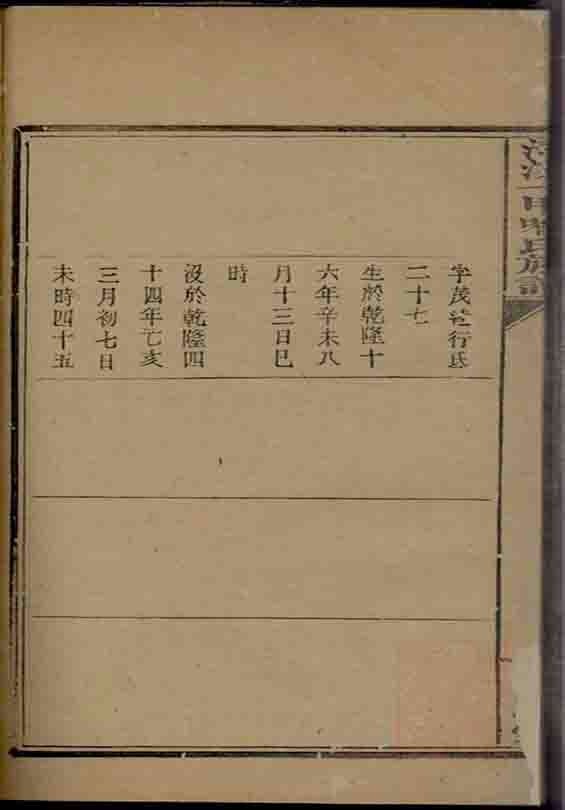 字茂 行氐
二十七
生於乾隆十
六年辛未八
月十三日巳
時
沒於乾隆四
十四年乙亥
三月初七日
未時四十五